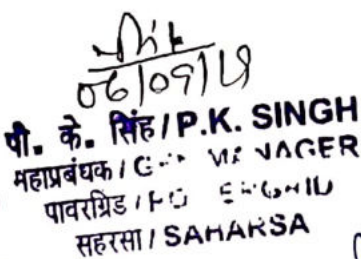 06/09/19
पी. के. सिंह / P.K. SINGH
महाप्रबंधक / MANAGER
पावरग्रिड /
सहरसा / SAHARSA